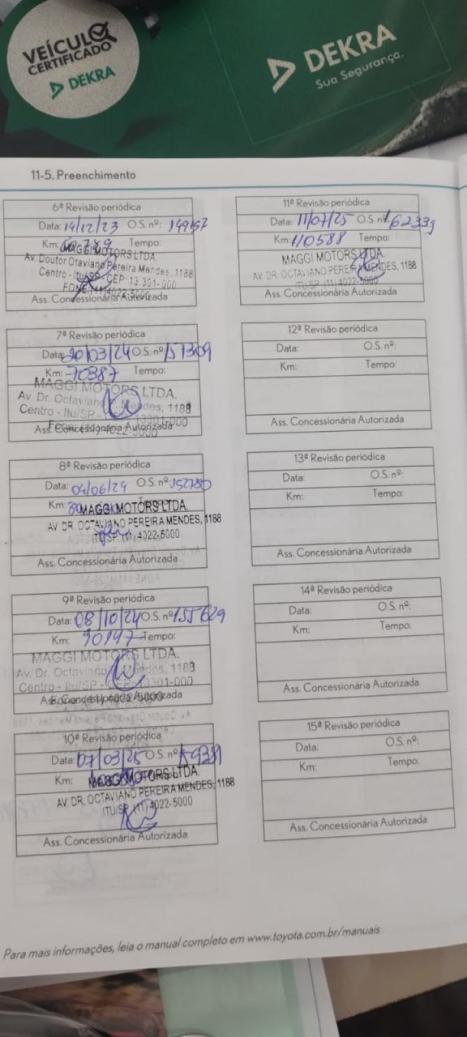 VEÍCULO
CERTIFICADO
DEKRA
DEKRA
Sua Segurança.
11-5. Preenchimento
6ª Revisão periódica
Data: 14/12/23 O.S. nº:
Km: Tempo:
MAGGI MOTORS LTDA.
Av. Doutor Otaviano Pereira Mendes, 1188
Centro - Itu/SP - CEP: 13.301-000
Ass. Concessionária Autorizada
7ª Revisão periódica
Data: 20/03/24 O.S. nº
Km: 70387 Tempo:
MAGGI MOTORS LTDA.
Av. Dr. Octaviano P. Mendes, 1188
Centro - Itu/SP -
Ass. Concessionária Autorizada
8ª Revisão periódica
Data: 04/06/24 O.S. nº: 152780
Km:
MAGGI MOTORS LTDA
AV DR. OCTAVIANO PEREIRA MENDES, 1188
ITU/SP (11) 4022-5000
Ass. Concessionária Autorizada
9ª Revisão periódica
Data: 08/10/24 O.S. nº: 155629
Km: 90197 Tempo:
MAGGI MOTORS LTDA.
Av. Dr. Octaviano Mendes, 1188
Centro - Itu/SP -
Ass. Concessionária Autorizada
10ª Revisão periódica
Data: 07/03/25 O.S. nº
Km:
MAGGI MOTORS LTDA.
AV DR. OCTAVIANO PEREIRA MENDES, 1188
ITU/SP (11) 4022-5000
Ass. Concessionária Autorizada
11ª Revisão periódica
Data: 11/07/25 O.S. nº: 162339
Km: 110588 Tempo:
MAGGI MOTORS LTDA.
AV DR. OCTAVIANO PEREIRA MENDES, 1188
ITU/SP (11) 4022-5000
Ass. Concessionária Autorizada
12ª Revisão periódica
Data: O.S. nº:
Km: Tempo:
Ass. Concessionária Autorizada
13ª Revisão periódica
Data: O.S. nº:
Km: Tempo:
Ass. Concessionária Autorizada
14ª Revisão periódica
Data: O.S. nº:
Km: Tempo:
Ass. Concessionária Autorizada
15ª Revisão periódica
Data: O.S. nº:
Km: Tempo:
Ass. Concessionária Autorizada
Para mais informações, leia o manual completo em www.toyota.com.br/manuais